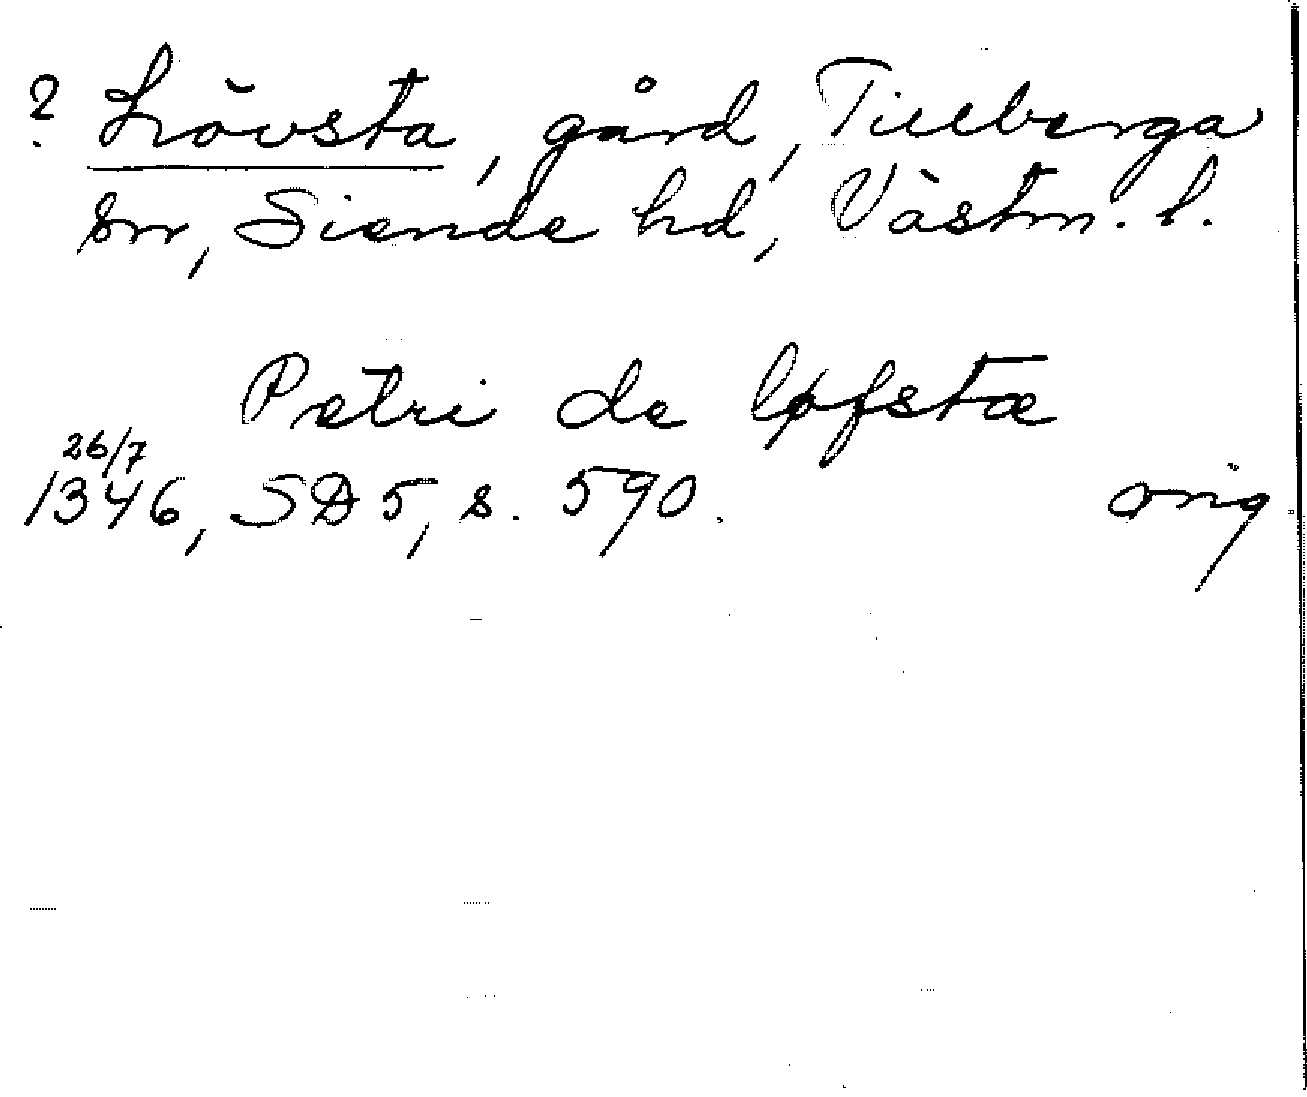 ? Lövsta, gård, Tillberga
sn, Siende hd, Västm. l.
Petri de løfstæ
26/7
1346, SD 5, s. 590.
orig